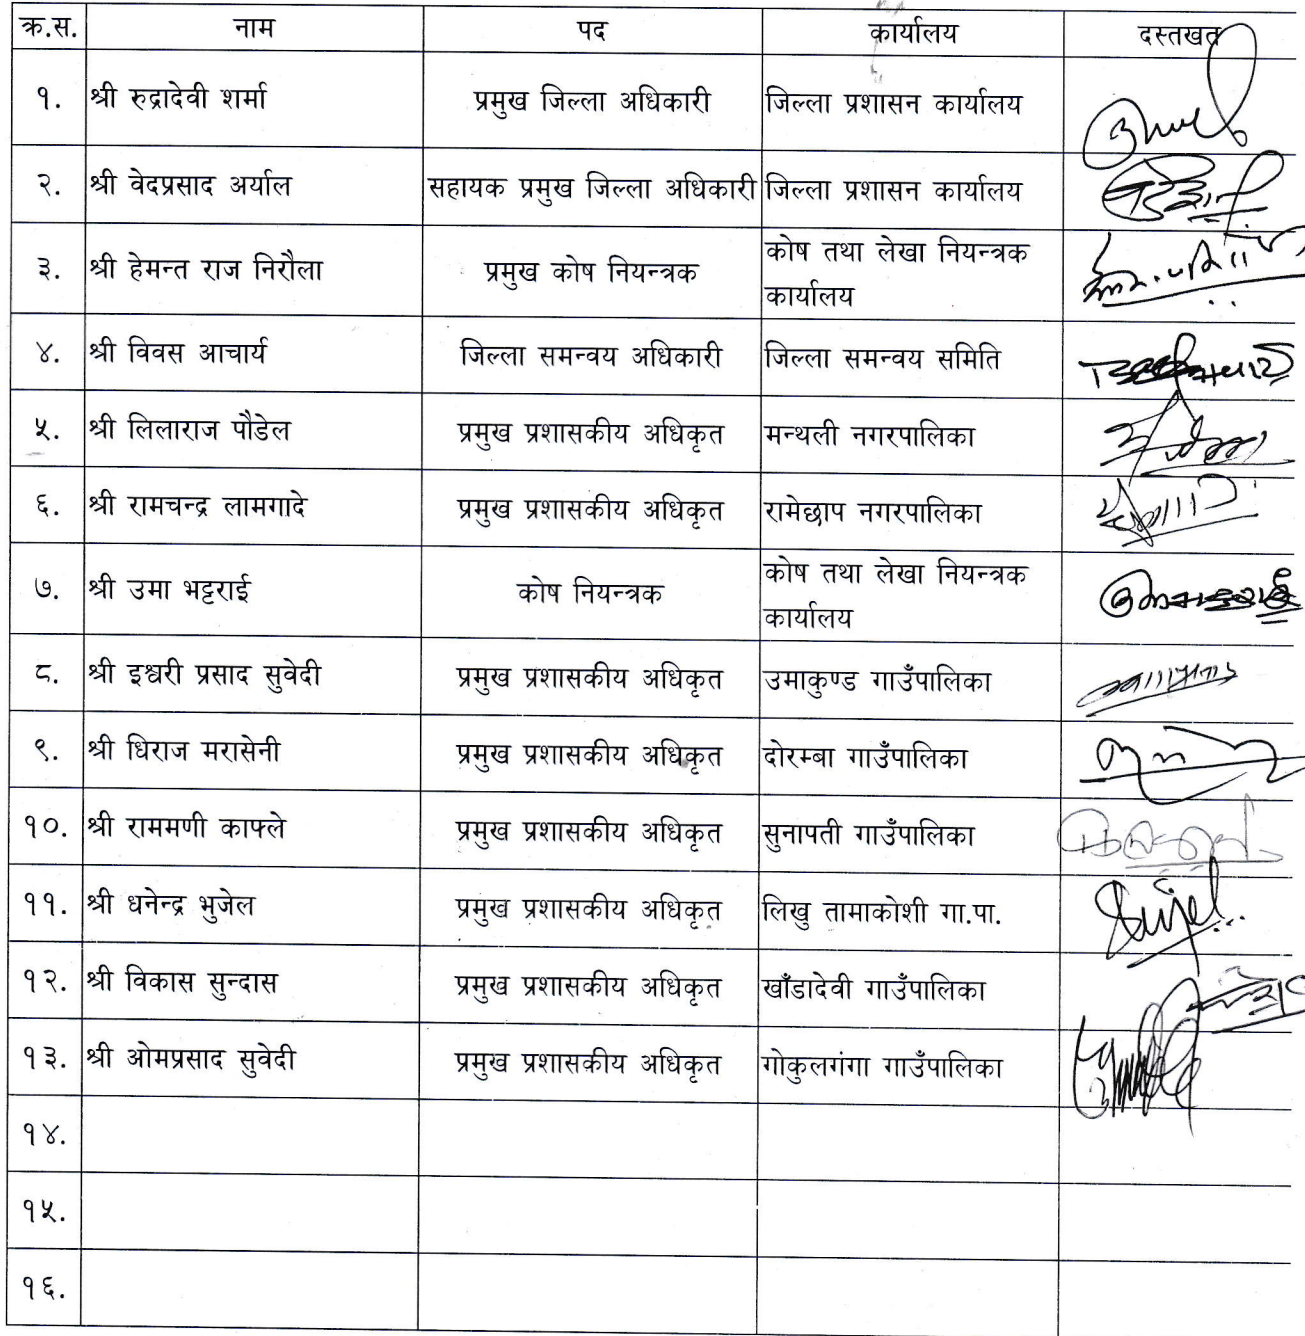 क्र.स. नाम पद कार्यालय दस्तखत
१. श्री रुद्रादेवी शर्मा प्रमुख जिल्ला अधिकारी जिल्ला प्रशासन कार्यालय
२. श्री वेदप्रसाद अर्याल सहायक प्रमुख जिल्ला अधिकारी जिल्ला प्रशासन कार्यालय
३. श्री हेमन्त राज निरौला प्रमुख कोष नियन्त्रक कोष तथा लेखा नियन्त्रक
कार्यालय
४. श्री विवस आचार्य जिल्ला समन्वय अधिकारी जिल्ला समन्वय समिति
५. श्री लिलाराज पौडेल प्रमुख प्रशासकीय अधिकृत मन्थली नगरपालिका
६. श्री रामचन्द्र लामगादे प्रमुख प्रशासकीय अधिकृत रामेछाप नगरपालिका
७. श्री उमा भट्टराई कोष नियन्त्रक कोष तथा लेखा नियन्त्रक
कार्यालय
८. श्री इश्वरी प्रसाद सुवेदी प्रमुख प्रशासकीय अधिकृत उमाकुण्ड गाउँपालिका
९. श्री धिराज मरासेनी प्रमुख प्रशासकीय अधिकृत दोरम्बा गाउँपालिका
१०. श्री राममणी काफ्ले प्रमुख प्रशासकीय अधिकृत सुनापती गाउँपालिका
११. श्री धनेन्द्र भुजेल प्रमुख प्रशासकीय अधिकृत लिखु तामाकोशी गा.पा.
१२. श्री विकास सुन्दास प्रमुख प्रशासकीय अधिकृत खाँडादेवी गाउँपालिका
१३. श्री ओमप्रसाद सुवेदी प्रमुख प्रशासकीय अधिकृत गोकुलगंगा गाउँपालिका
१४.
१५.
१६.